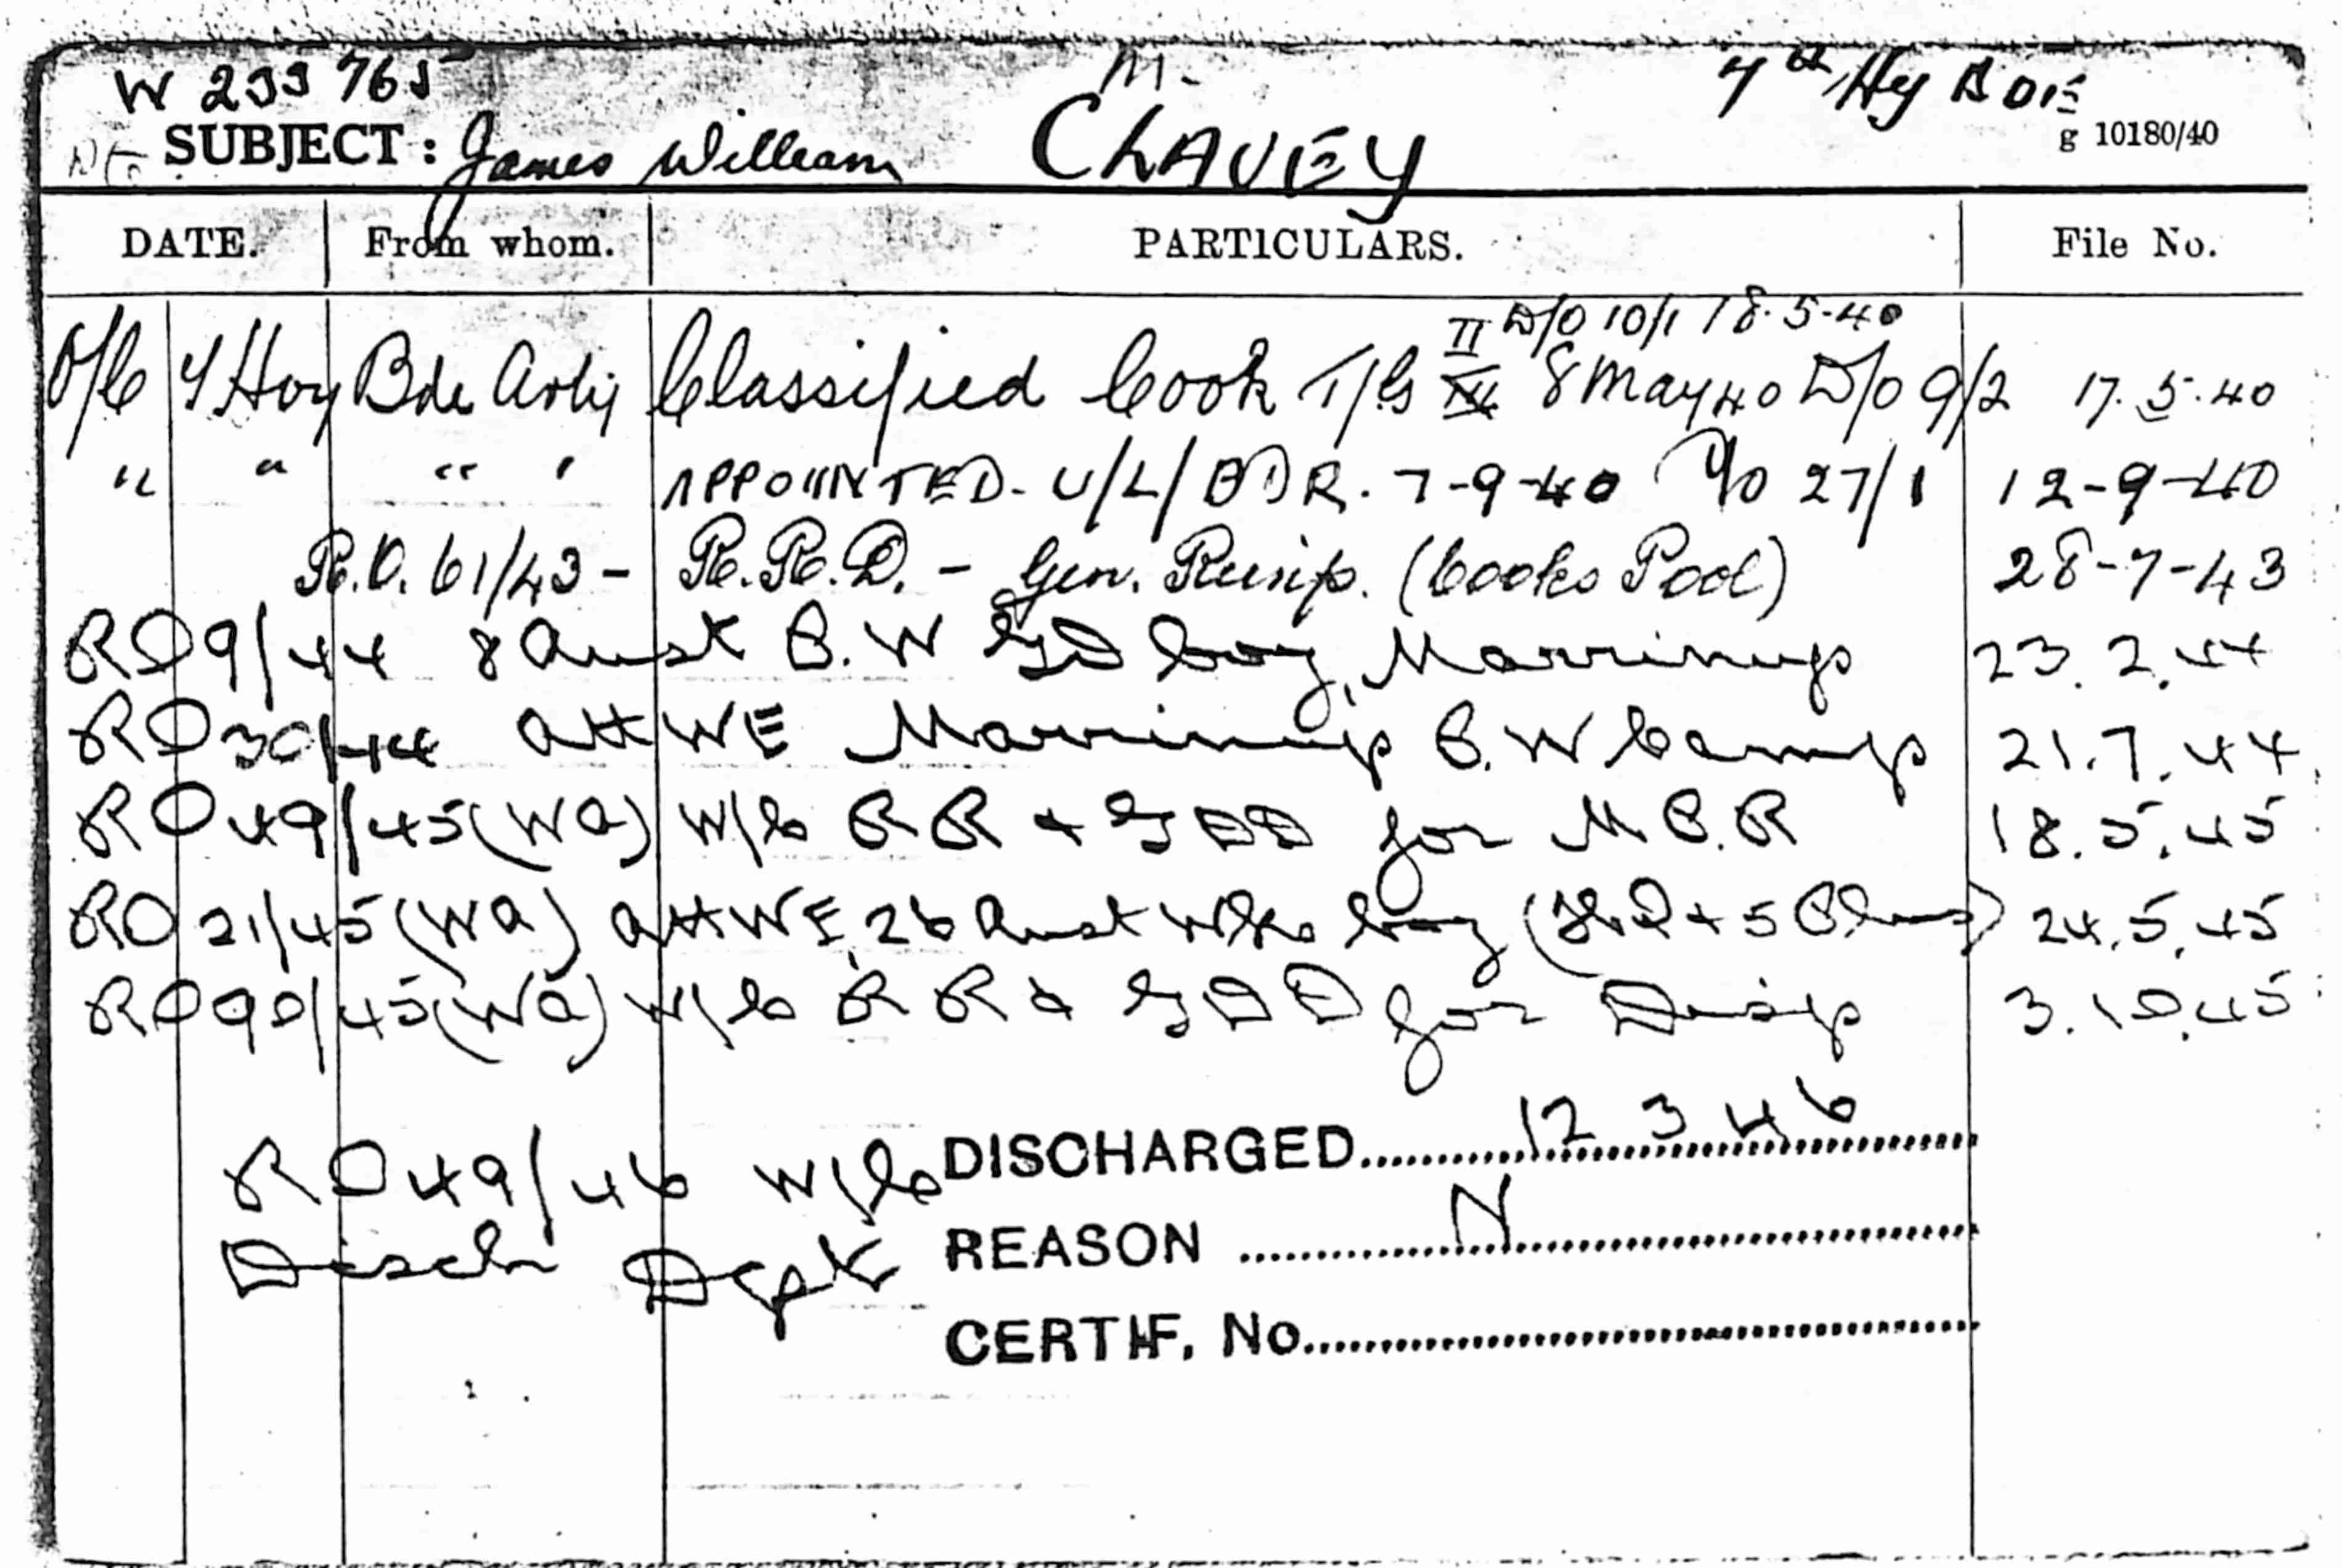 W 233765 M. 7th Hy BDE
Pte SUBJECT : James William CLAVEY g 10180/40
DATE. From whom. PARTICULARS. File No.
II D/O 10/1 18.5.40
O/C 7 Hvy Bde Arty Classified Cook T/Gs III 8 May 40 D/O 9/2 17.5.40
" " " " APPOINTED- U/L/BDR. 7-9-40 D/O 27/1 12-9-40
R.O. 61/43 - R.R.D. - Gen. Reinfs. (Cooks Pool) 28-7-43
RO 9/44 8 Aust P.W GD Coy, Marrinup 23.2.44
RO 30/44 att WE Marrinup P.W Camp 21.7.44
RO 49/45 (WA) W/to RR & GDD for M C.R 18.5.45
RO 21/45 (WA) att WE, 26 Aust Wks Coy (H.Q + 5 Plns) 24.5.45
RO 90/45 (WA) W/to RR & GDD for Disp 3.10.45
RO 49/46 W/to DISCHARGED 12 3 46
Disch Dept REASON N
CERTIF. No.